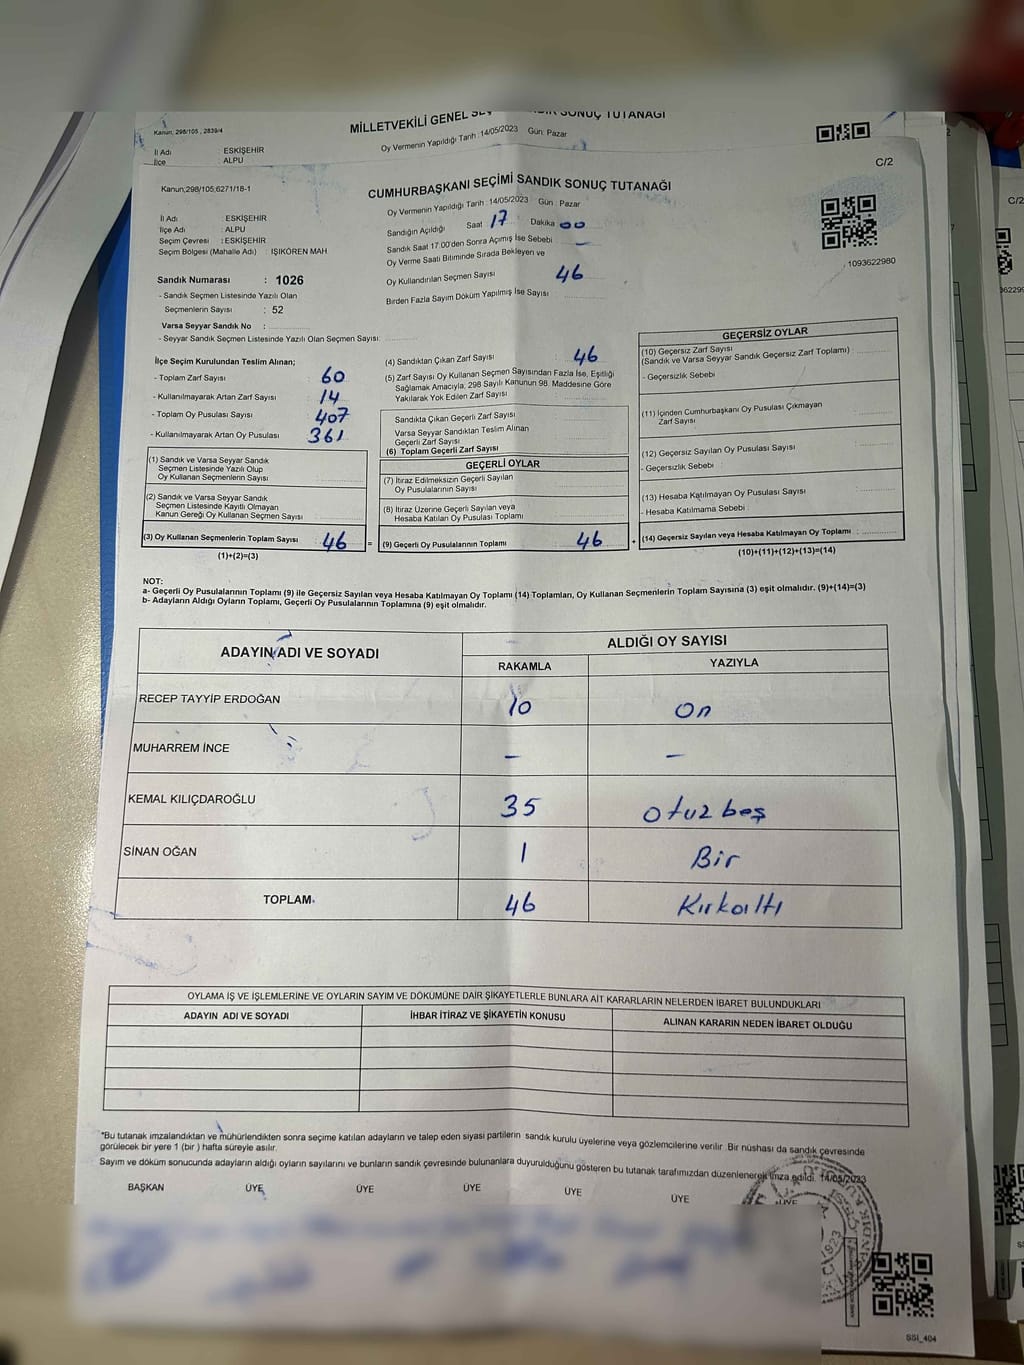 Kanun; 298/105 , 2839/4
MİLLETVEKİLİ GENEL SONUÇ TUTANAĞI
Oy Vermenin Yapıldığı Tarih :14/05/2023 Gün: Pazar
İl Adı : ESKİŞEHİR
İlçe : ALPU
C/2
Kanun;298/105;6271/18-1
CUMHURBAŞKANI SEÇİMİ SANDIK SONUÇ TUTANAĞI
Oy Vermenin Yapıldığı Tarih :14/05/2023 Gün : Pazar
İl Adı : ESKİŞEHİR
İlçe Adı : ALPU
Seçim Çevresi : ESKİŞEHİR
Seçim Bölgesi (Mahalle Adı) : IŞIKÖREN MAH
Sandığın Açıldığı Saat 17 Dakika 00
Sandık Saat 17.00'den Sonra Açımış İse Sebebi –
Oy Verme Saati Bitiminde Sırada Bekleyen ve
Oy Kullandırılan Seçmen Sayısı 46
Birden Fazla Sayım Döküm Yapılmış İse Sayısı
1093622980
Sandık Numarası : 1026
- Sandık Seçmen Listesinde Yazılı Olan
Seçmenlerin Sayısı : 52
Varsa Seyyar Sandık No :
- Seyyar Sandık Seçmen Listesinde Yazılı Olan Seçmen Sayısı:
İlçe Seçim Kurulundan Teslim Alınan;
- Toplam Zarf Sayısı 60
- Kullanılmayarak Artan Zarf Sayısı 14
- Toplam Oy Pusulası Sayısı 407
- Kullanılmayarak Artan Oy Pusulası 361
(1) Sandık ve Varsa Seyyar Sandık
Seçmen Listesinde Yazılı Olup
Oy Kullanan Seçmenlerin Sayısı
(2) Sandık ve Varsa Seyyar Sandık
Seçmen Listesinde Kayıtlı Olmayan
Kanun Gereği Oy Kullanan Seçmen Sayısı
(3) Oy Kullanan Seçmenlerin Toplam Sayısı 46
(1)+(2)=(3)
(4) Sandıktan Çıkan Zarf Sayısı : 46
(5) Zarf Sayısı Oy Kullanan Seçmen Sayısından Fazla İse, Eşitliği
Sağlamak Amacıyla, 298 Sayılı Kanunun 98. Maddesine Göre
Yakılarak Yok Edilen Zarf Sayısı
Sandıkta Çıkan Geçerli Zarf Sayısı
Varsa Seyyar Sandıktan Teslim Alınan
Geçerli Zarf Sayısı
(6) Toplam Geçerli Zarf Sayısı
GEÇERLİ OYLAR
(7) İtiraz Edilmeksizin Geçerli Sayılan
Oy Pusulalarının Sayısı
(8) İtiraz Üzerine Geçerli Sayılan veya
Hesaba Katılan Oy Pusulası Toplamı
= (9) Geçerli Oy Pusulalarının Toplamı 46
GEÇERSİZ OYLAR
(10) Geçersiz Zarf Sayısı
(Sandık ve Varsa Seyyar Sandık Geçersiz Zarf Toplamı)
- Geçersizlik Sebebi :
(11) İçinden Cumhurbaşkanı Oy Pusulası Çıkmayan
Zarf Sayısı
(12) Geçersiz Sayılan Oy Pusulası Sayısı
- Geçersizlik Sebebi :
(13) Hesaba Katılmayan Oy Pusulası Sayısı
- Hesaba Katılmama Sebebi :
+ (14) Geçersiz Sayılan veya Hesaba Katılmayan Oy Toplamı :
(10)+(11)+(12)+(13)=(14)
NOT:
a- Geçerli Oy Pusulalarının Toplamı (9) ile Geçersiz Sayılan veya Hesaba Katılmayan Oy Toplamı (14) Toplamları, Oy Kullanan Seçmenlerin Toplam Sayısına (3) eşit olmalıdır. (9)+(14)=(3)
b- Adayların Aldığı Oyların Toplamı, Geçerli Oy Pusulalarının Toplamına (9) eşit olmalıdır.
ADAYIN ADI VE SOYADI ALDIĞI OY SAYISI
RAKAMLA YAZIYLA
RECEP TAYYİP ERDOĞAN 10 On
MUHARREM İNCE – –
KEMAL KILIÇDAROĞLU 35 otuz beş
SİNAN OĞAN 1 Bir
TOPLAM 46 Kırkaltı
OYLAMA İŞ VE İŞLEMLERİNE VE OYLARIN SAYIM VE DÖKÜMÜNE DAİR ŞİKAYETLERLE BUNLARA AİT KARARLARIN NELERDEN İBARET BULUNDUKLARI
ADAYIN ADI VE SOYADI İHBAR İTİRAZ VE ŞİKAYETİN KONUSU ALINAN KARARIN NEDEN İBARET OLDUĞU
*Bu tutanak imzalandıktan ve mühürlendikten sonra seçime katılan adayların ve talep eden siyasi partilerin sandık kurulu üyelerine veya gözlemcilerine verilir. Bir nüshası da sandık çevresinde
görülecek bir yere 1 (bir ) hafta süreyle asılır.
Sayım ve döküm sonucunda adayların aldığı oyların sayılarını ve bunların sandık çevresinde bulunanlara duyurulduğunu gösteren bu tutanak tarafımızdan düzenlenerek imza edildi. 14/05/2023
BAŞKAN ÜYE ÜYE ÜYE ÜYE ÜYE ÜYE
SSİ_404